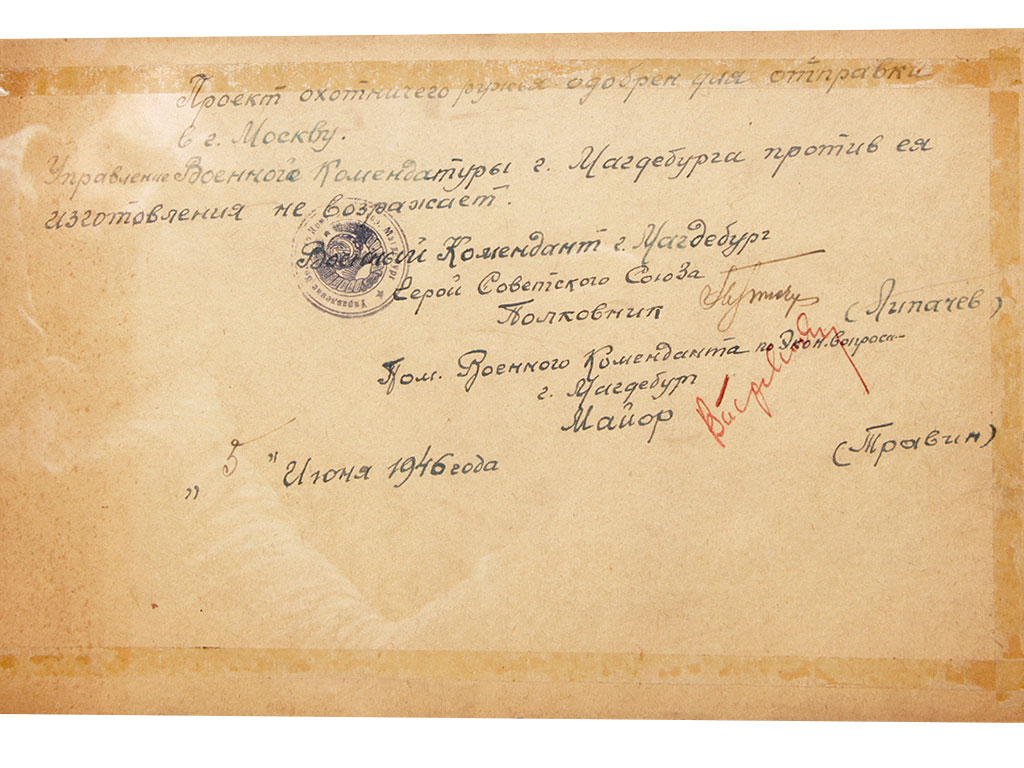 Проект охотничего ружья одобрен для отправки
в г. Москву.
Управление Военного Комендатуры г. Магдебурга против ея
изготовления не возражает.
Военный Комендант г. Магдебург
Герой Советского Союза
Полковник (Липачев)
Пом. Военного Коменданта по Экон. вопросам
г. Магдебург
Майор
(Травин)
„ 5 " Июня 1946 года